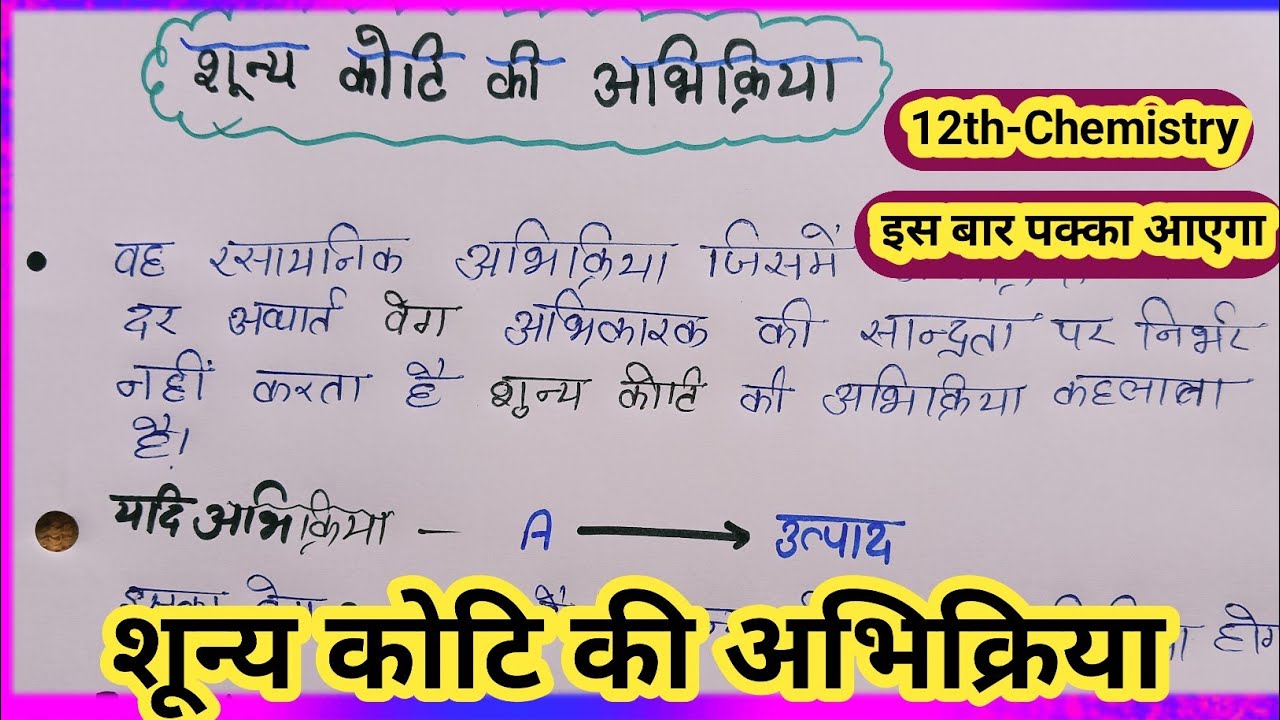 शून्य कोटि की अभिक्रिया
12th-Chemistry
इस बार पक्का आएगा
• वह रसायनिक अभिक्रिया जिसमें
दर अथार्त वेग अभिकारक की सान्द्रता पर निर्भर
नहीं करता है शुन्य कोटि की अभिक्रिया कहलाता
है।
• यदि अभिक्रिया – A ⟶ उत्पाद
शून्य कोटि की अभिक्रिया